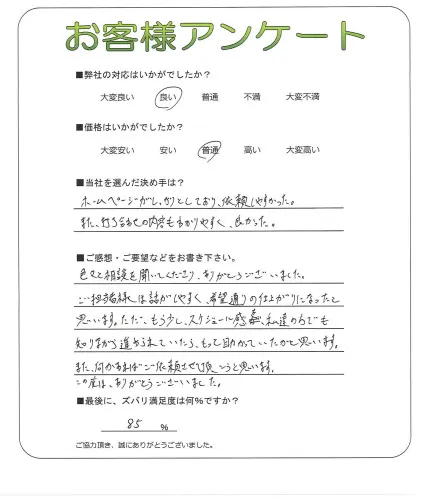 お客様アンケート
■弊社の対応はいかがでしたか?
大変良い 良い 普通 不満 大変不満
■価格はいかがでしたか?
大変安い 安い 普通 高い 大変高い
■当社を選んだ決め手は?
ホームページがしっかりとしており、依頼しやすかった。
また、打ち合わせの内容も分かりやすく、良かった。
■ご感想・ご要望などをお書き下さい。
色々と相談を聞いてくださり、ありがとうございました。
ご担当者様は話がしやすく、希望通りの仕上がりになったと
思います。ただ、もう少し、スケジュール感を、私達の方でも
知りながら進められていたら、もっと助かっていたかと思います。
また、何かあればご依頼させて頂こうと思います。
この度は、ありがとうございました。
■最後に、ズバリ満足度は何%ですか?
85 %
ご協力頂き、誠にありがとうございました。